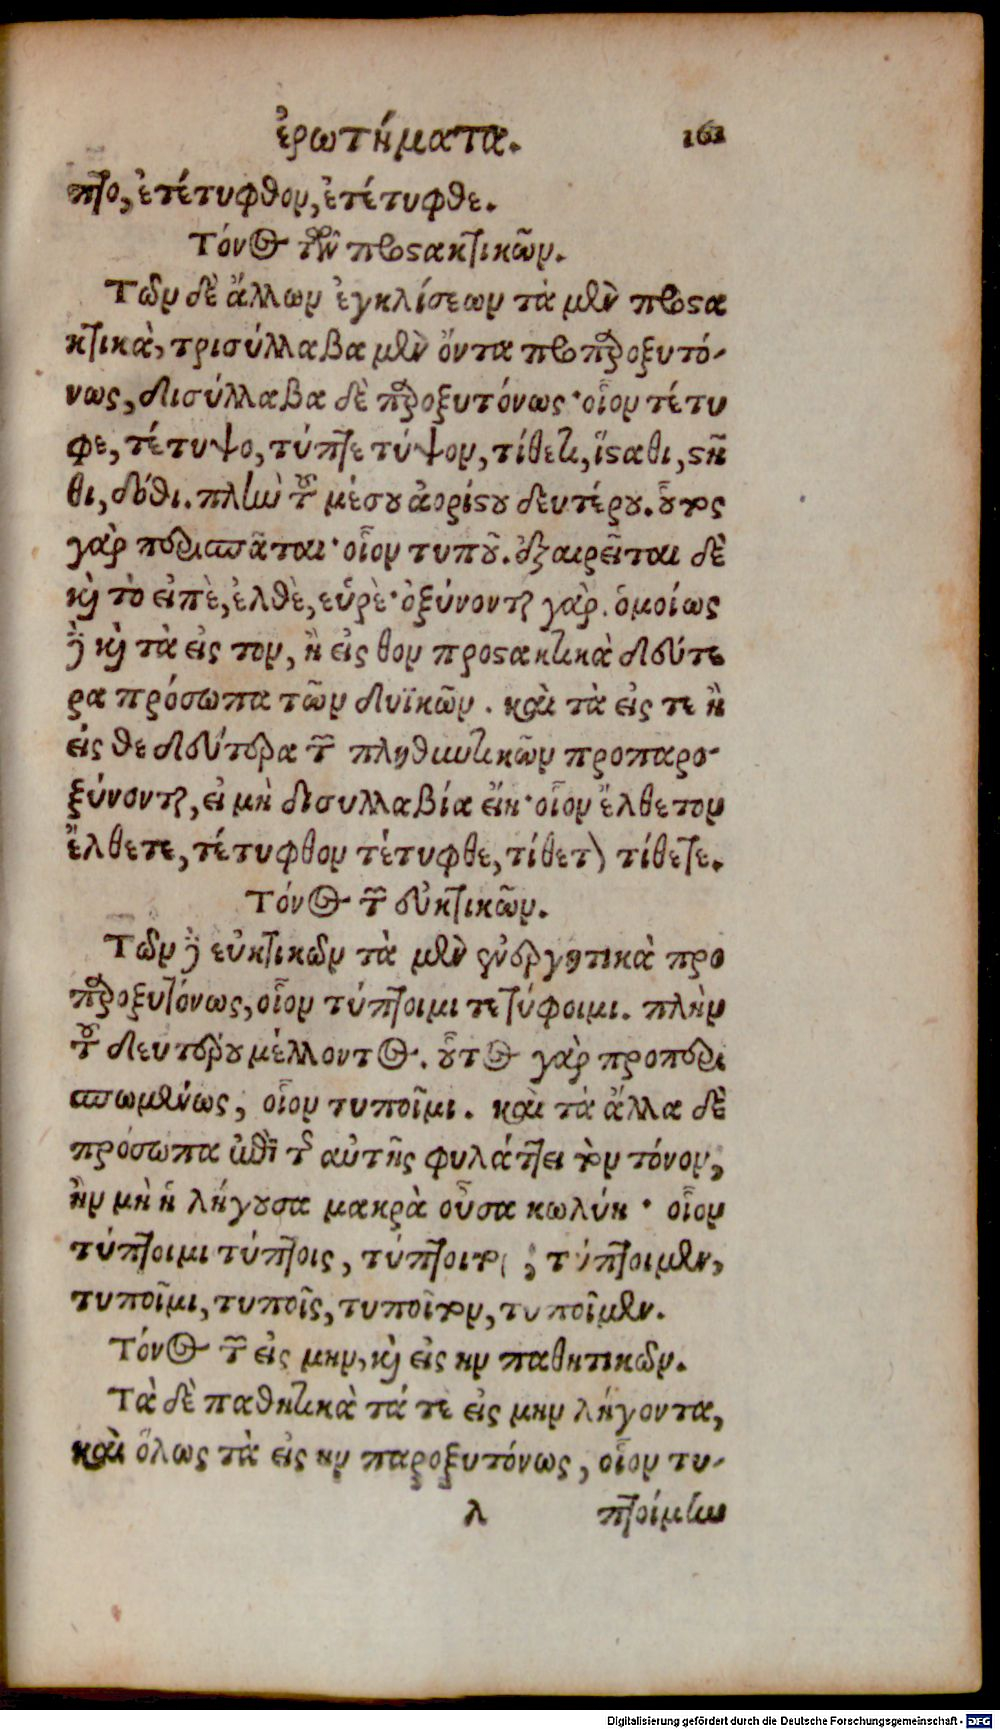 ἐρωτήματα. 161
πτο, ἐτέτυφθον, ἐτέτυφθε.
Τόνος τῶν προστακτικῶν.
Τῶν δὲ ἄλλων ἐγκλίσεων τὰ μὲν προστα
κτικὰ, τρισύλλαβα μὲν ὄντα προπαροξυτό-
νως, δισύλλαβα δὲ παροξυτόνως· οἷον τέτυ
φε, τέτυψο, τύπτε τύψον, τίθετι, ἵσταθι, στῆ
θι, δόθι. πλὴν τοῦ μέσου ἀορίστου δευτέρου. οὗτος
γὰρ περισπᾶται· οἷον τυποῦ. ἐξαιρεῖται δὲ
καὶ τὸ εἰπὲ, ἐλθὲ, εὑρὲ· ὀξύνονται γὰρ. ὁμοίως
δὲ καὶ τὰ εἰς τον, ἢ εἰς θον προστακτικὰ δεύτε
ρα πρόσωπα τῶν δυϊκῶν. καὶ τὰ εἰς τε ἢ
εἰς θε δεύτερα τῶν πληθυντικῶν προπαρο-
ξύνονται, εἰ μὴ δισυλλαβία εἴη· οἷον ἔλθετον
ἔλθετε, τέτυφθον τέτυφθε, τίθεται τίθεσθε.
Τόνος τῶν εὐκτικῶν.
Τῶν δὲ εὐκτικῶν τὰ μὲν ἐνεργητικὰ προ
παροξυτόνως, οἷον τύπτοιμι τετύφοιμι. πλὴν
τοῦ δευτέρου μέλλοντος. οὗτος γὰρ προπερι
σπωμένως, οἷον τυποῖμι. καὶ τὰ ἄλλα δὲ
πρόσωπα ἐπὶ τῆς αὐτῆς φυλάττει τὸν τόνον,
ἢν μὴ ἡ λήγουσα μακρὰ οὖσα κωλύῃ· οἷον
τύπτοιμι τύπτοις, τύπτοιτον, τύπτοιμεν,
τυποῖμι, τυποῖς, τυποῖτον, τυποῖμεν.
Τόνος τῶν εἰς μην, καὶ εἰς ην παθητικῶν.
Τὰ δὲ παθητικὰ τά τε εἰς μην λήγοντα,
καὶ ὅλως τὰ εἰς ην παροξυτόνως, οἷον τυ-
λ πτοίμην
Digitalisierung gefördert durch die Deutsche Forschungsgemeinschaft - DFG